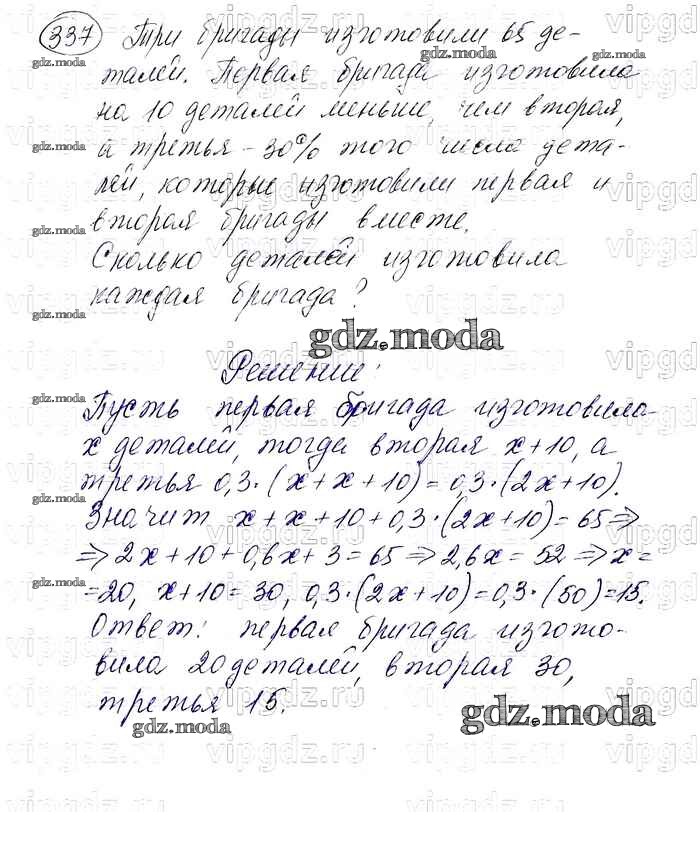 337 Три бригады изготовили 65 де-
талей. Первая бригада изготовила
на 10 деталей меньше, чем вторая,
а третья - 30% того числа дета-
лей, которые изготовили первая и
вторая бригады вместе.
Сколько деталей изготовила
каждая бригада?
gdz.moda
Решение:
Пусть первая бригада изготовила
x деталей, тогда вторая x+10, а
третья 0,3·(x+x+10)=0,3·(2x+10).
Значит x+x+10+0,3·(2x+10)=65⇒
⇒2x+10+0,6x+3=65⇒2,6x=52⇒x=
=20, x+10=30, 0,3·(2x+10)=0,3·(50)=15.
Ответ: первая бригада изгото-
вила 20 деталей, вторая 30,
третья 15.
gdz.moda
gdz.moda